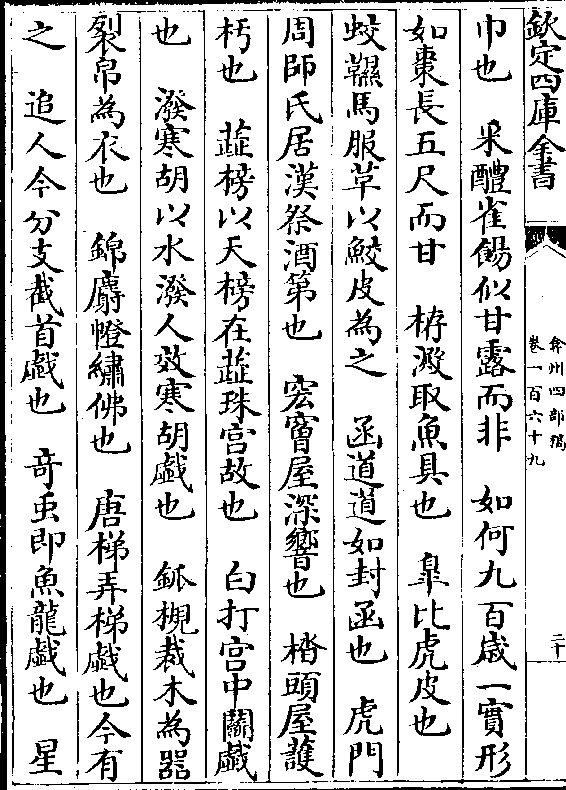 欽定四庫全書
弇州四部稿
卷一百六十九
二十
巾也　釆醴雀餳似甘露而非　如何九百歲一實形
如棗長五尺而甘　栫澱取魚具也　臯比虎皮也
蛟韅馬服草以鮫皮為之　函道道如封函也　虎門
周師氏居漢祭酒第也　宏窨屋深響也　榙頭屋護
杇也　蘂榜以天榜在蘂珠宫故也　白打宫中鬭戯
也　潑寒胡以水潑人效寒胡戯也　鈲槻裁木為器
裂帛為衣也　錦麝幨繡佛也　唐梯弄梯戯也今有
之　追人今分支截首戯也　竒䖝即魚龍戯也　星